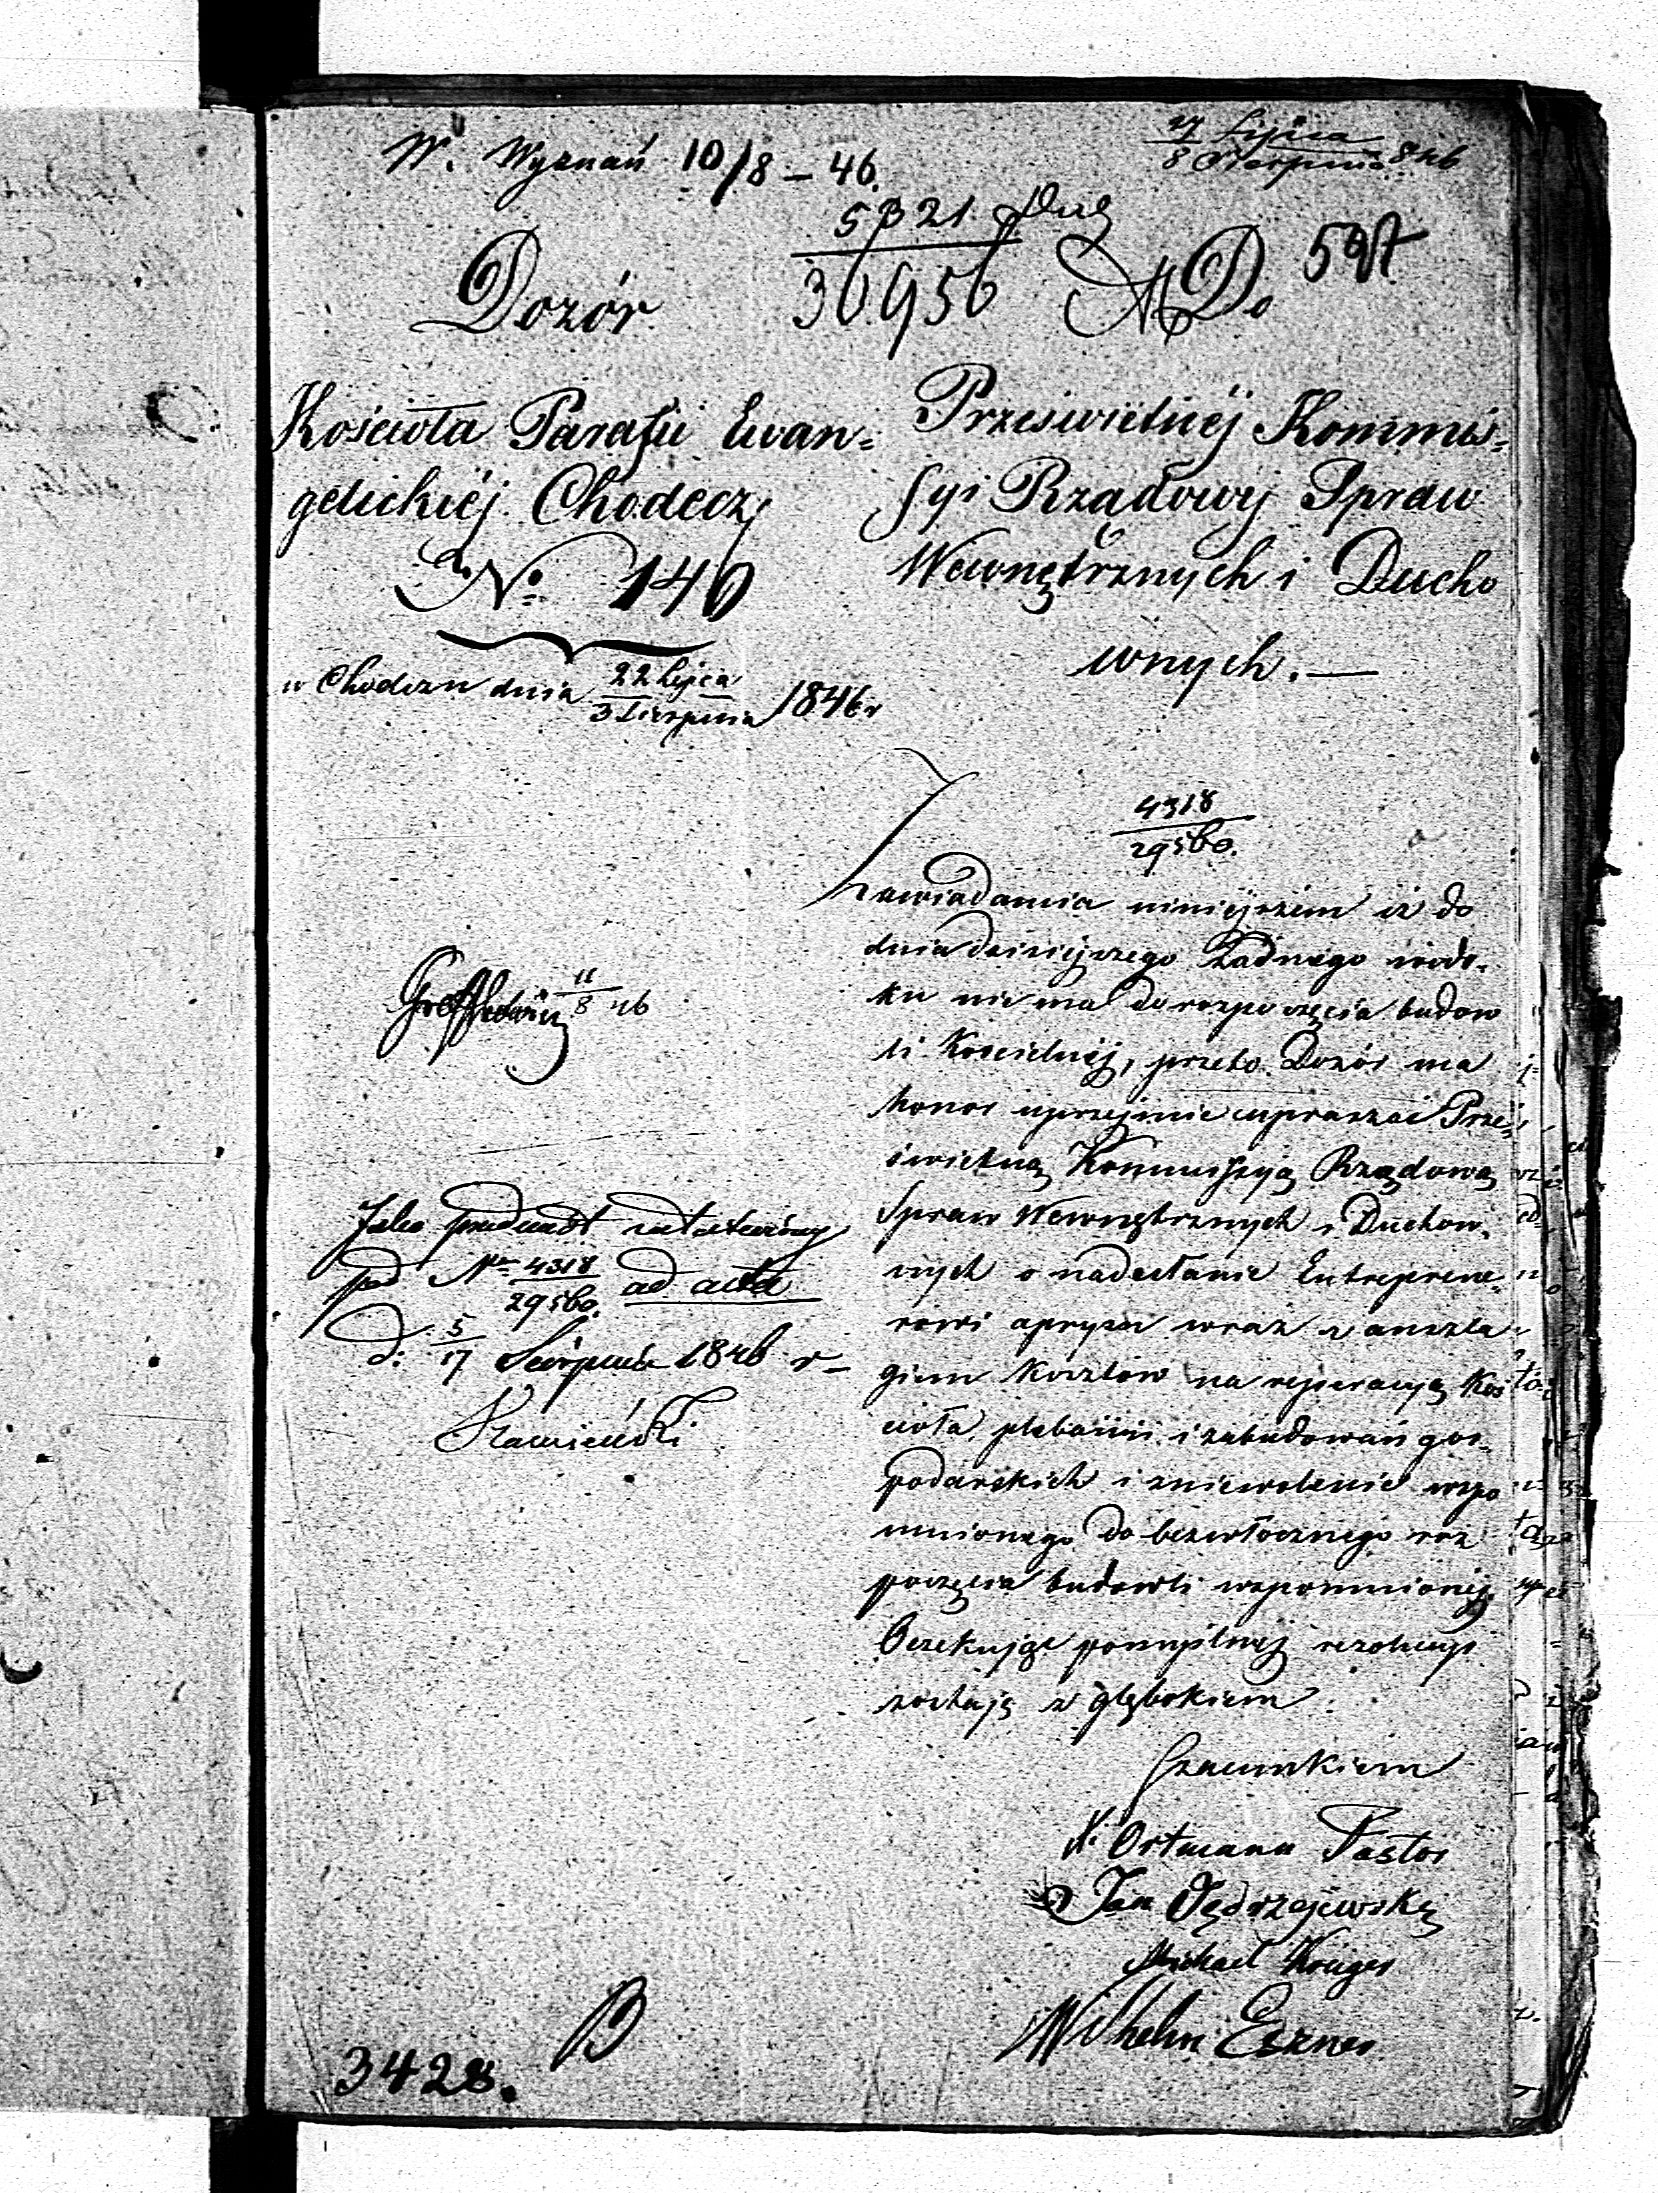 W. Wyznań 10/8 – 46.
27 Lipca
8 Sierpnia 846
5321
30956
597
Dozór
Kościoła Parafii Ewan=
gelickiéj Chodecz
No 146
w Chodczu dnia 22 Lipca
3 Sierpnia 1846 r
Do
Prześwietnéj Kommis=
syi Rządowéj Spraw
Wewnętrznych i Ducho
wnych. —
4318
29560.
Zawiadamia niniejszém iż do
dnia dzisiejszego Żadnego wido=
ku nie ma do rozpoczęcia budow
li Kościelnéj, przeto Dozór ma
honor uprzejmie upraszać Prze=
świetną Kommissyją Rządową
Spraw Wewnętrznych i Duchow=
nych o nadesłanie Entreprene=
rowi wraz z anszla=
giem kosztów na reperacyą Koś
cioła, plebanii i zabudowań gos=
podarskich i zniewolenie wspo
mnionego do bezwłocznego roz
poczęcia budowli wspomnionéj.
Oczekując pomyślnéj rezolucyi
zostaję z głębokiem
szacunkiem
Ortmann Pastor
Jan Jędrzejewski
Michael Krüger
Wilhelm
11
8 46
Jako produkt załatwiony
pod Nrem 4318
29560. ad acta
d: 5
17 Sierpnia 1846 r –
3428.
B